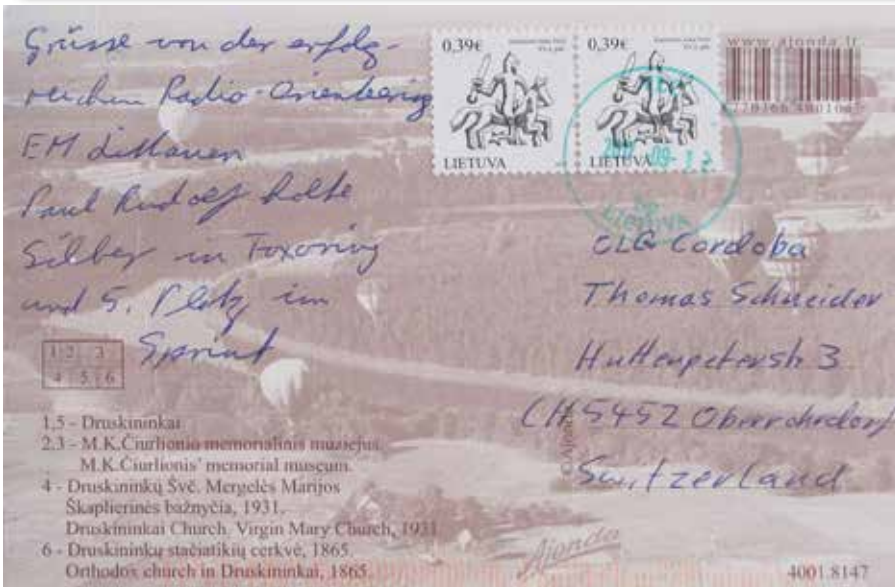 Grüsse von der erfolg-
reichen Radio-Orienteering
EM Littauen
Paul Rudolf holte
Silber in Foxoring
und 5. Platz im
Sprint
0,39€
LIETUVA
0,39€
LIETUVA
www.ajonda.lt
LIETUVA
OLG Cordoba
Thomas Schneider
CH 5452 Oberrohrdorf
Switzerland
1 2 3
4 5 6
1,5 - Druskininkai.
2,3 - M.K.Čiurlionio memorialinis muziejus.
M.K.Čiurlionis' memorial museum.
4 - Druskininkų Švč. Mergelės Marijos
Škaplierinės bažnyčia, 1931.
Druskininkai Church. Virgin Mary Church, 1931.
6 - Druskininkų stačiatikių cerkvė, 1865.
Orthodox church in Druskininkai, 1865.
© Ajonda
Ajonda
4001.8147